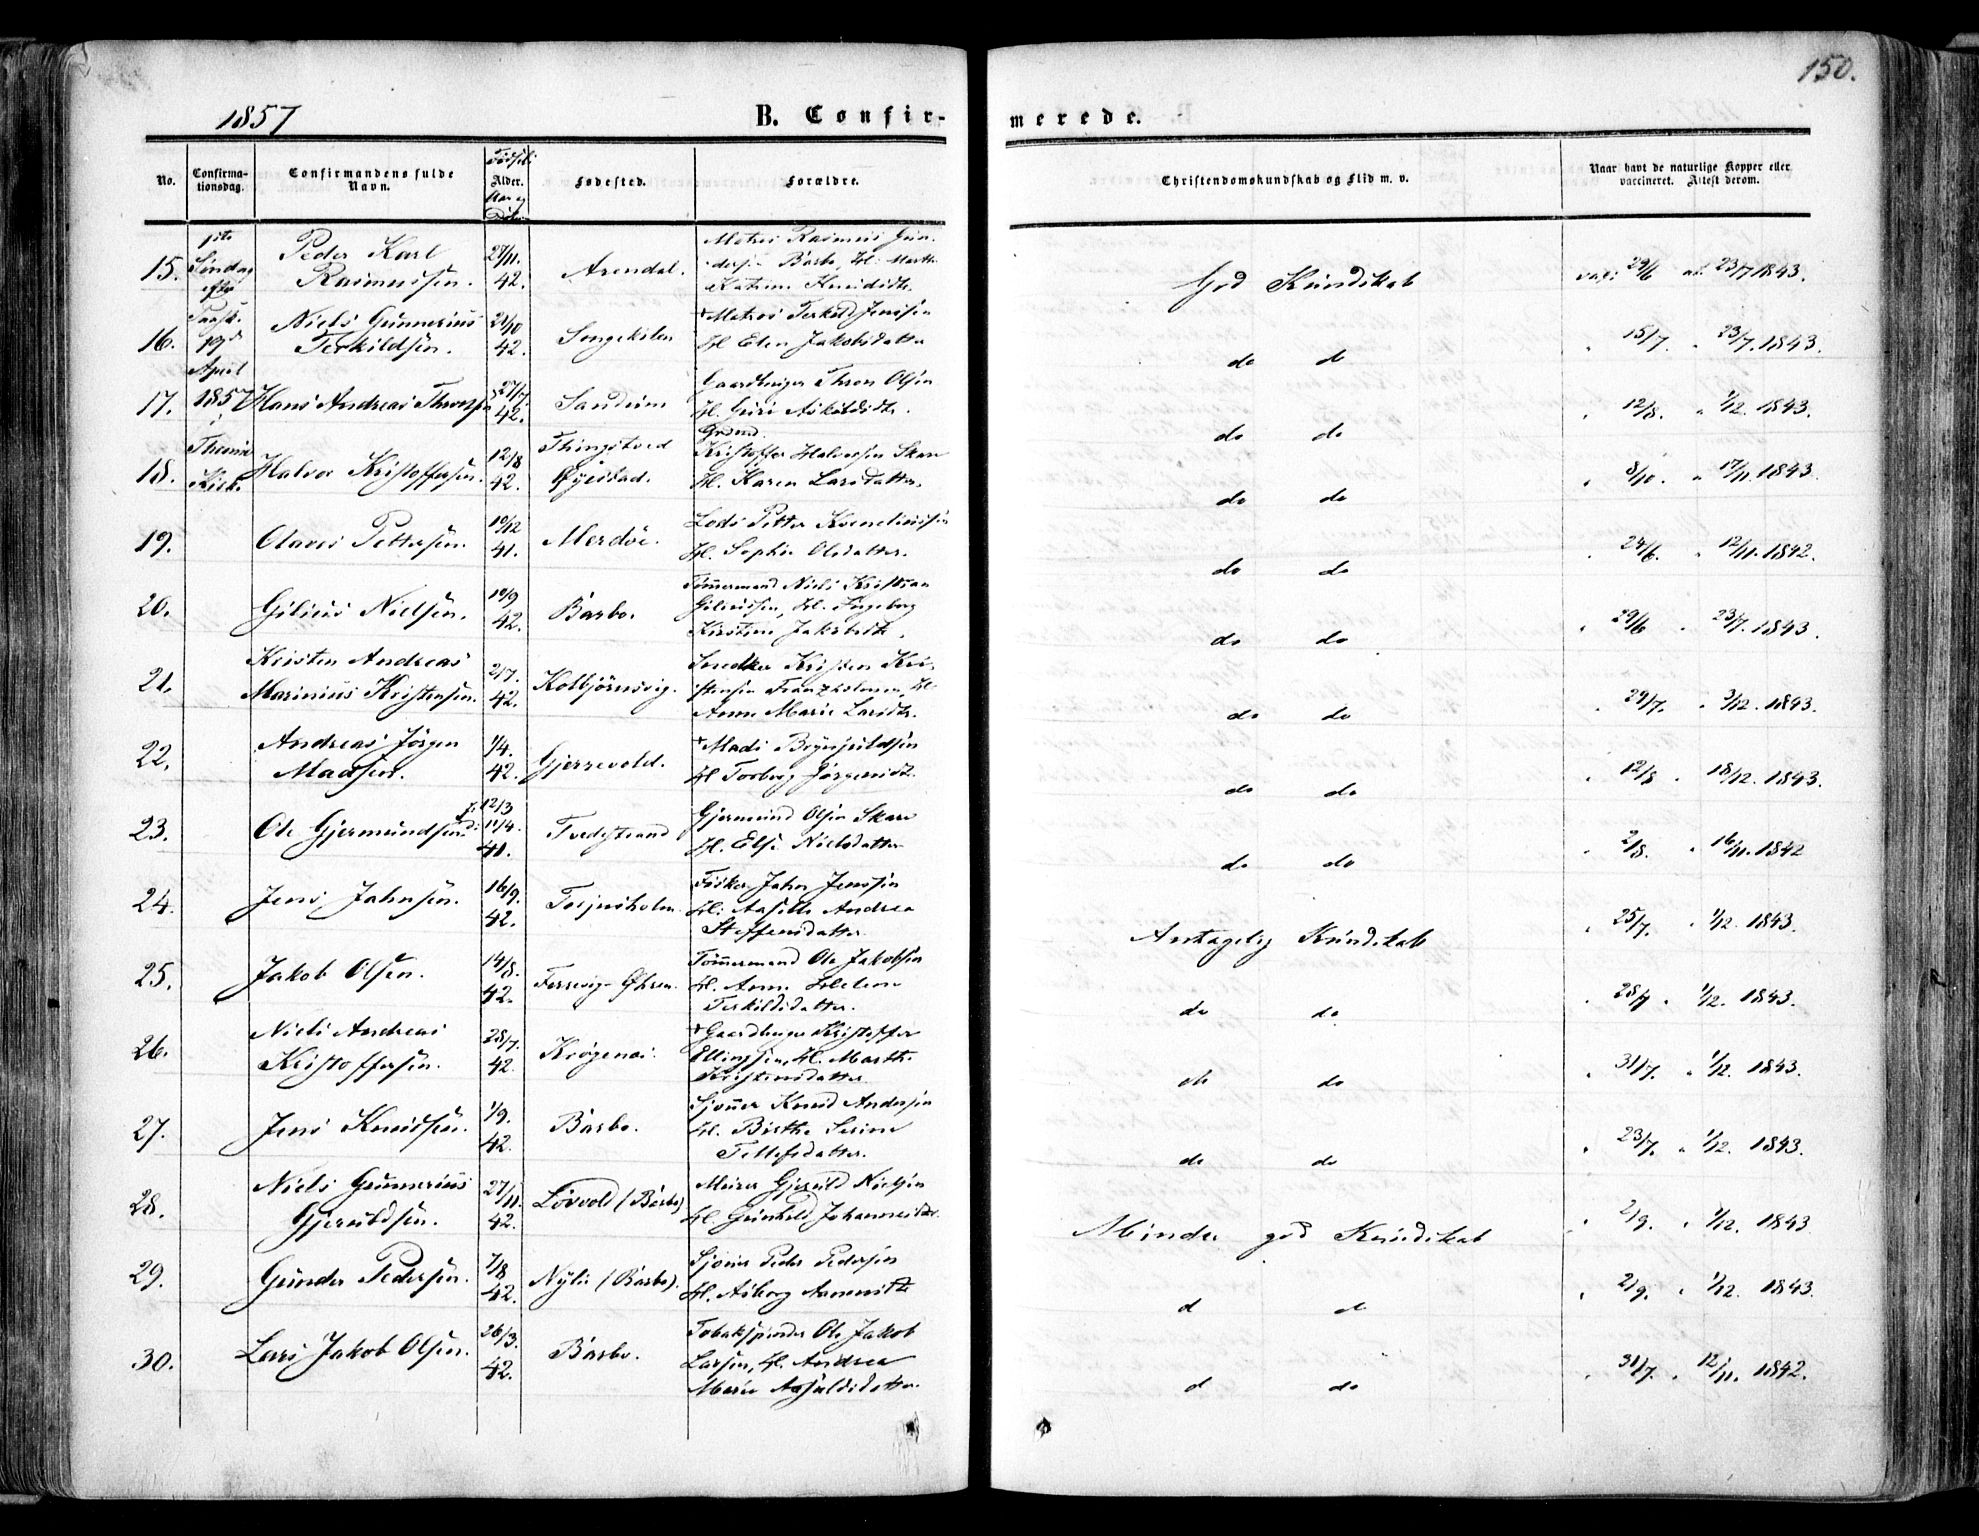 150.
1857
B. Confir-
merede.
No.
Confirma-
tionsdag.
Confirmandens fulde
Navn.
Alder.
Fødested.
Forældre.
Christendomskundskab og Flid m. v.
Naar havt de naturlige Kopper eller
vaccineret. Attest derom.
1ste
Søndag
efter
Paaske
19de
April
1857
i
Kirk.
15.
Peder Karl
Rasmussen.
27/11.
42.
Arendal.
Matros Rasmus Gun-
dersen Barbo, H. Marthe
Katrine Knudsdtr.
God Kundskab
vac: 29/6 att. 23/7 1843.
16.
Niels Gunnerius
Terkildsen.
21/10
42.
Songekilen
+Matros Terkild Jensen
H. Elen Jakobsdatter
do do
15/7. " 23/7. 1843.
17.
Hans Andreas
27/7.
42.
Sandum
Gaardbruger Thron Olsen
H. Guri
do do
" 12/8. " 1/12. 1843.
18.
Halvor Kristoffersen.
12/8
42.
Thingstved
Øyestad.
Kristoffer Halvorsen Skare
H. Karen Larsdatter.
do do
" 8/10. " 17/11. 1843.
19.
Olaves Pettersen.
10/12
41.
Merdøe.
Lods Petter Kornelinssen
H. Sophie Olsdatter.
do do
" 24/6. " 12/11. 1842.
20.
Gilius Nielsen.
10/9
42.
Barbo.
Tømmermand Niels Kristian
Giliussen, H. Ingeborg
Kirstine Jakobsdtr.
do do
" 29/6 " 23/7. 1843.
21.
Kristen Andreas
Marinius Kristensen.
2/7.
42.
Kolbjørnsvig.
Snedker Kristen Kri-
stensen Franzholmen, H.
Anne Marie Larsdtr.
do do
" 29/7. " 3/12. 1843.
22.
Andreas Jørgen
Madsen.
1/4.
42.
Gjerrevold.
+Mads Brynjuldsen
H. Torborg Jørgensdt.
do do
" 12/8 " 18/12. 1843.
23.
Ole Gjermundsen.
12/3
11/4.
41.
Tvedestrand
Gjermund Olsen Skare
H. Else Nielsdatter
do do
" 2/8. " 16/11. 1842
24.
Jens Jahnsen.
16/9.
42.
Torjusholm.
Fisker Jahn Jenssen
H. Aasille Andrea
Steffensdatter.
Antagelig Kundskab
" 25/7. " 1/12. 1843.
25.
Jakob Olsen.
14/8.
42.
Tømmermand Ole Jakobsen
H. Anne Helene
Terkildsdatter.
do do
" 28/7 " 1/12. 1843.
26.
Niels Andreas
Kristoffersen.
28/7.
42.
Krøgenes.
+Gaardbruger Kristoffer
Ellingsen, H. Marthe
Kristensdatter
do do
" 31/7. " 1/12. 1843.
27.
Jens Knudsen.
1/9.
42.
Barbo.
Sjømer Knud Andersen
H. Birthe Serine
Tellefsdatter.
do do
" 23/7. " 1/12. 1843.
28.
Niels Gunnerius
Gjeruldsen.
27/11.
42.
Løvvold (Barbo)
Murer Gjeruld Nielsen
H. Gunhild Johannesdtr.
Mindre god Kundskab
" 2/9. " 1/12. 1843
29.
Gunder Pedersen.
1/8
42.
Nylie (Barbo).
Sjømer Peder Pedersen
H. Asborg
d d
" 2/9. " 1/12. 1843.
30.
Lars Jakob Olsen.
26/3.
42.
Barbo.
Tobakspinder Ole Jakob
Larsen, H. Andrea
Marie
d do
" 31/7. " 12/11. 1842.